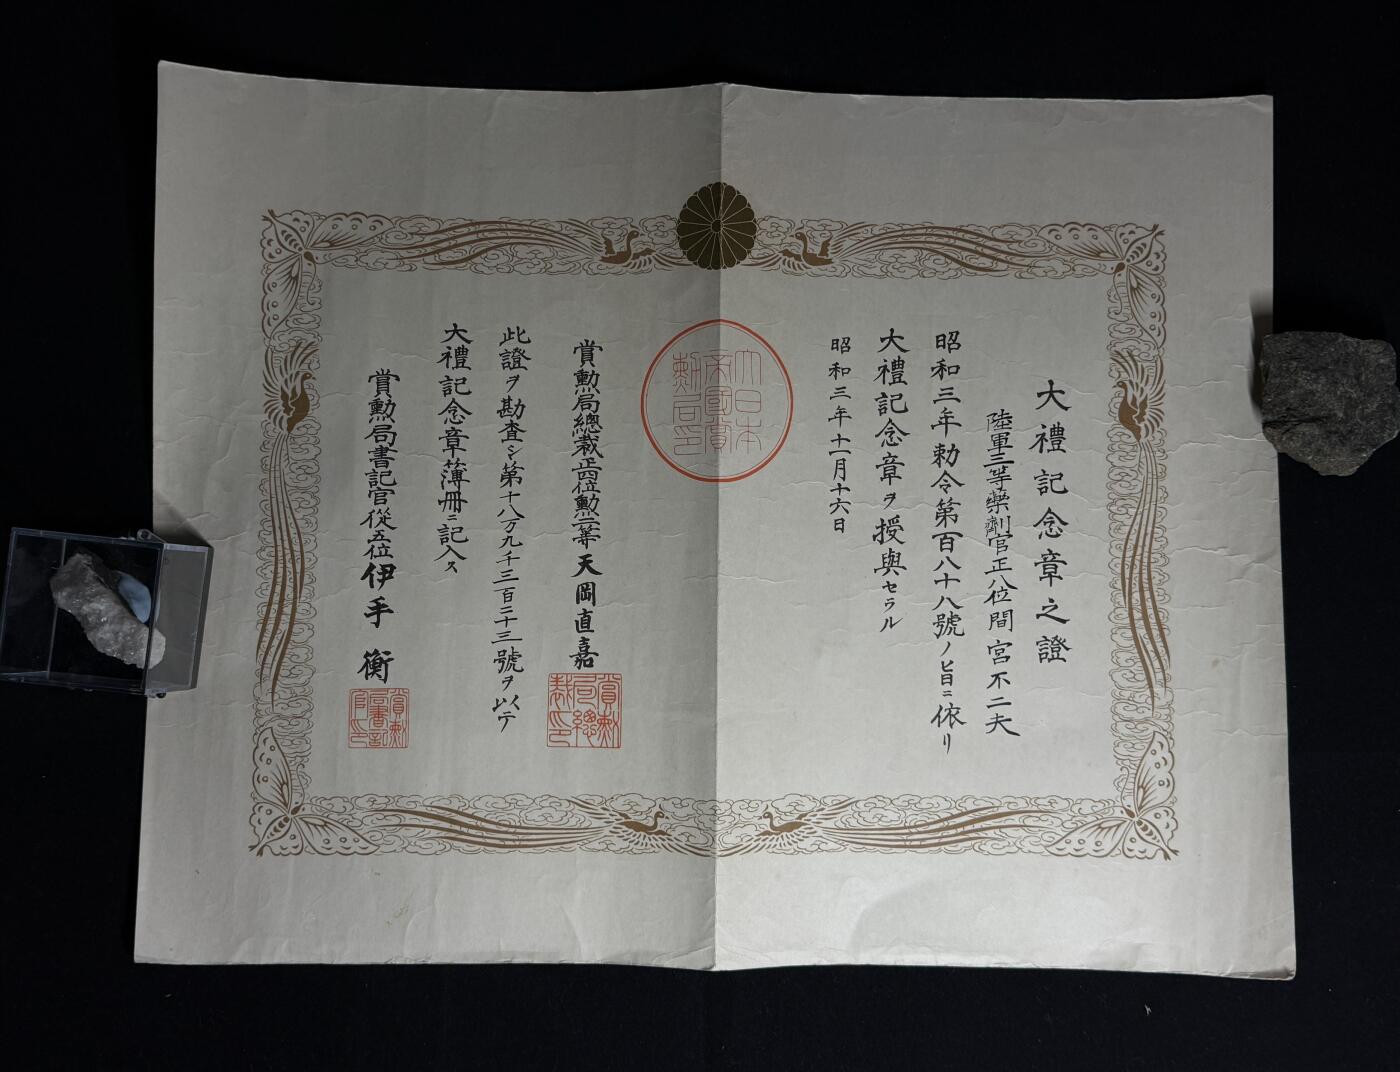 大禮記念章之證
陸軍三等藥劑官正八位間宮不二夫
昭和三年勅令第百八十八號ノ旨ニ依リ
大禮記念章ヲ授與セラル
昭和三年十一月十六日
大日本帝國賞勲局印
賞勲局總裁正四位勲二等天岡直嘉
賞勲局總裁印
此證ヲ勘査シ第十八万九千三百二十三號ヲ以テ
大禮記念章簿册ニ記入ス
賞勲局書記官從五位伊手衡
賞勲局書記官印